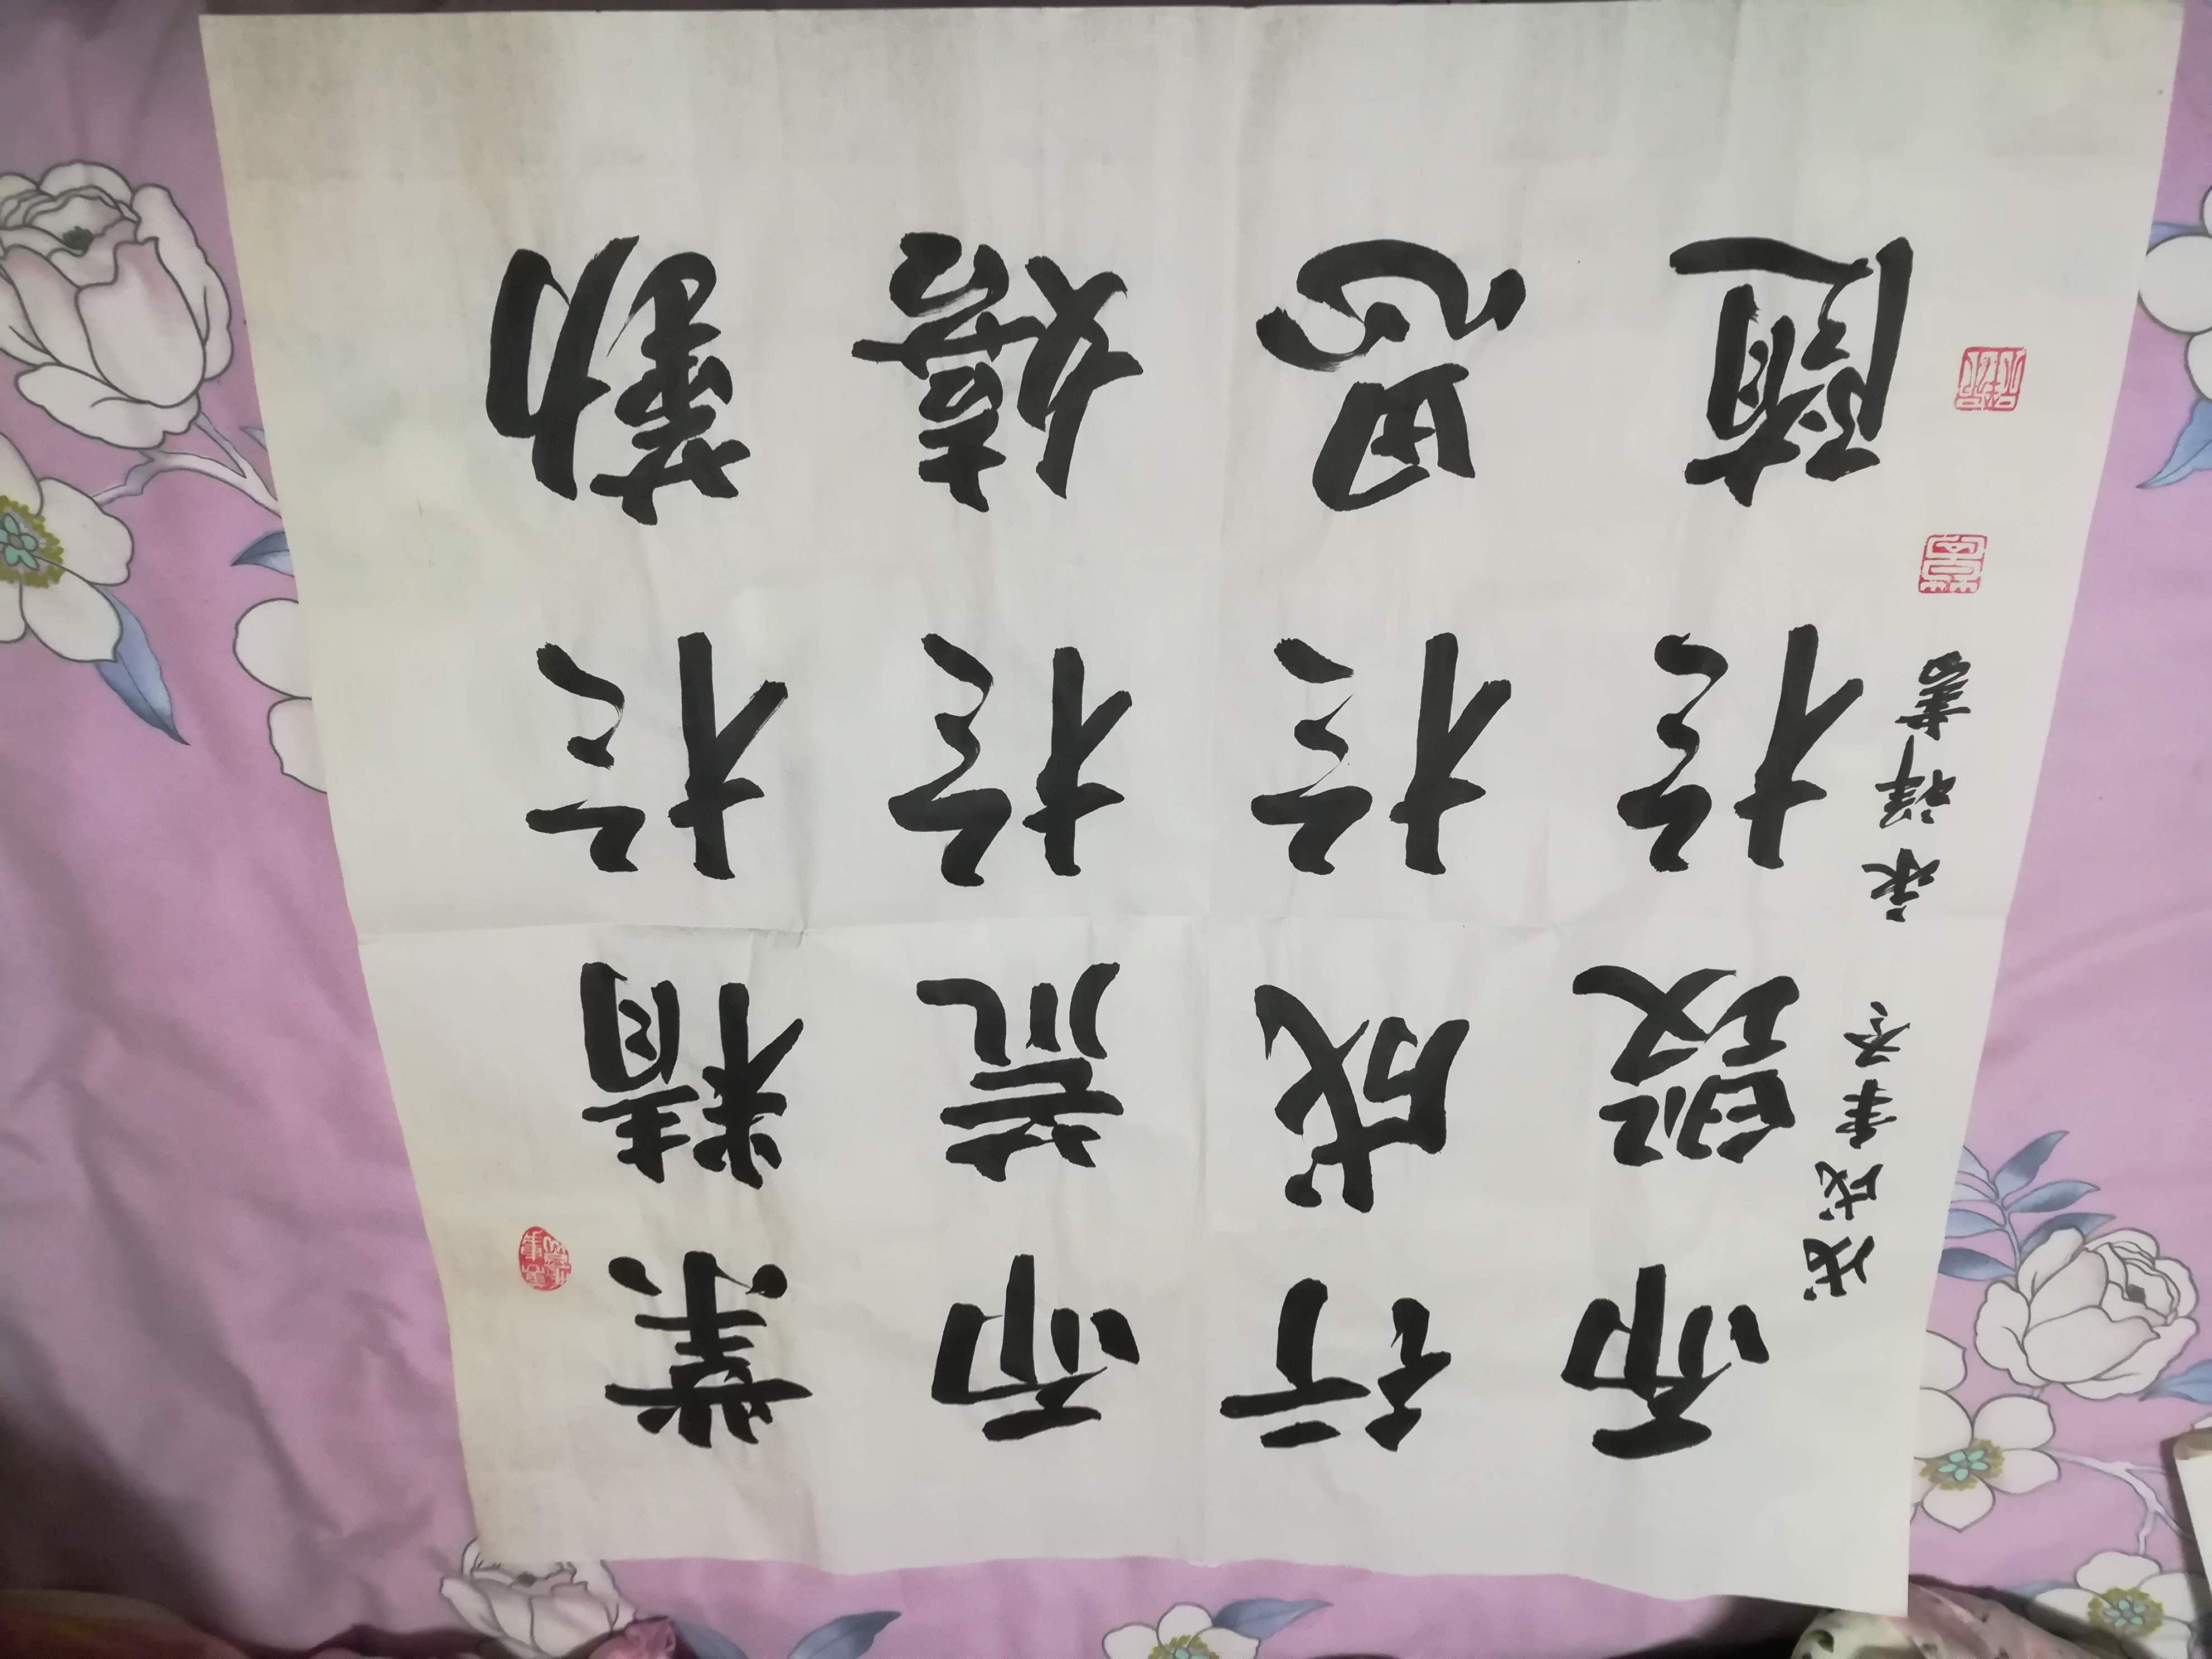 業精於勤
而荒於嬉
行成於思
而毀於隨
戊戌年冬 永祥書